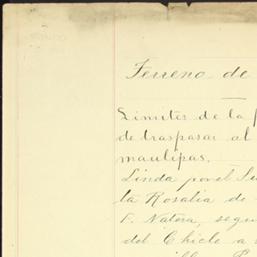 Terreno de
Limites de la
de traspasar al
maulipas.
Linda por el
la Rosalia de
F. Natera, segu
del Chicle a